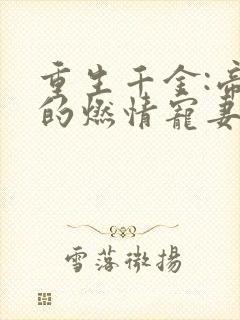 重生千金:帝
的燃情寵妻
雪落微揚